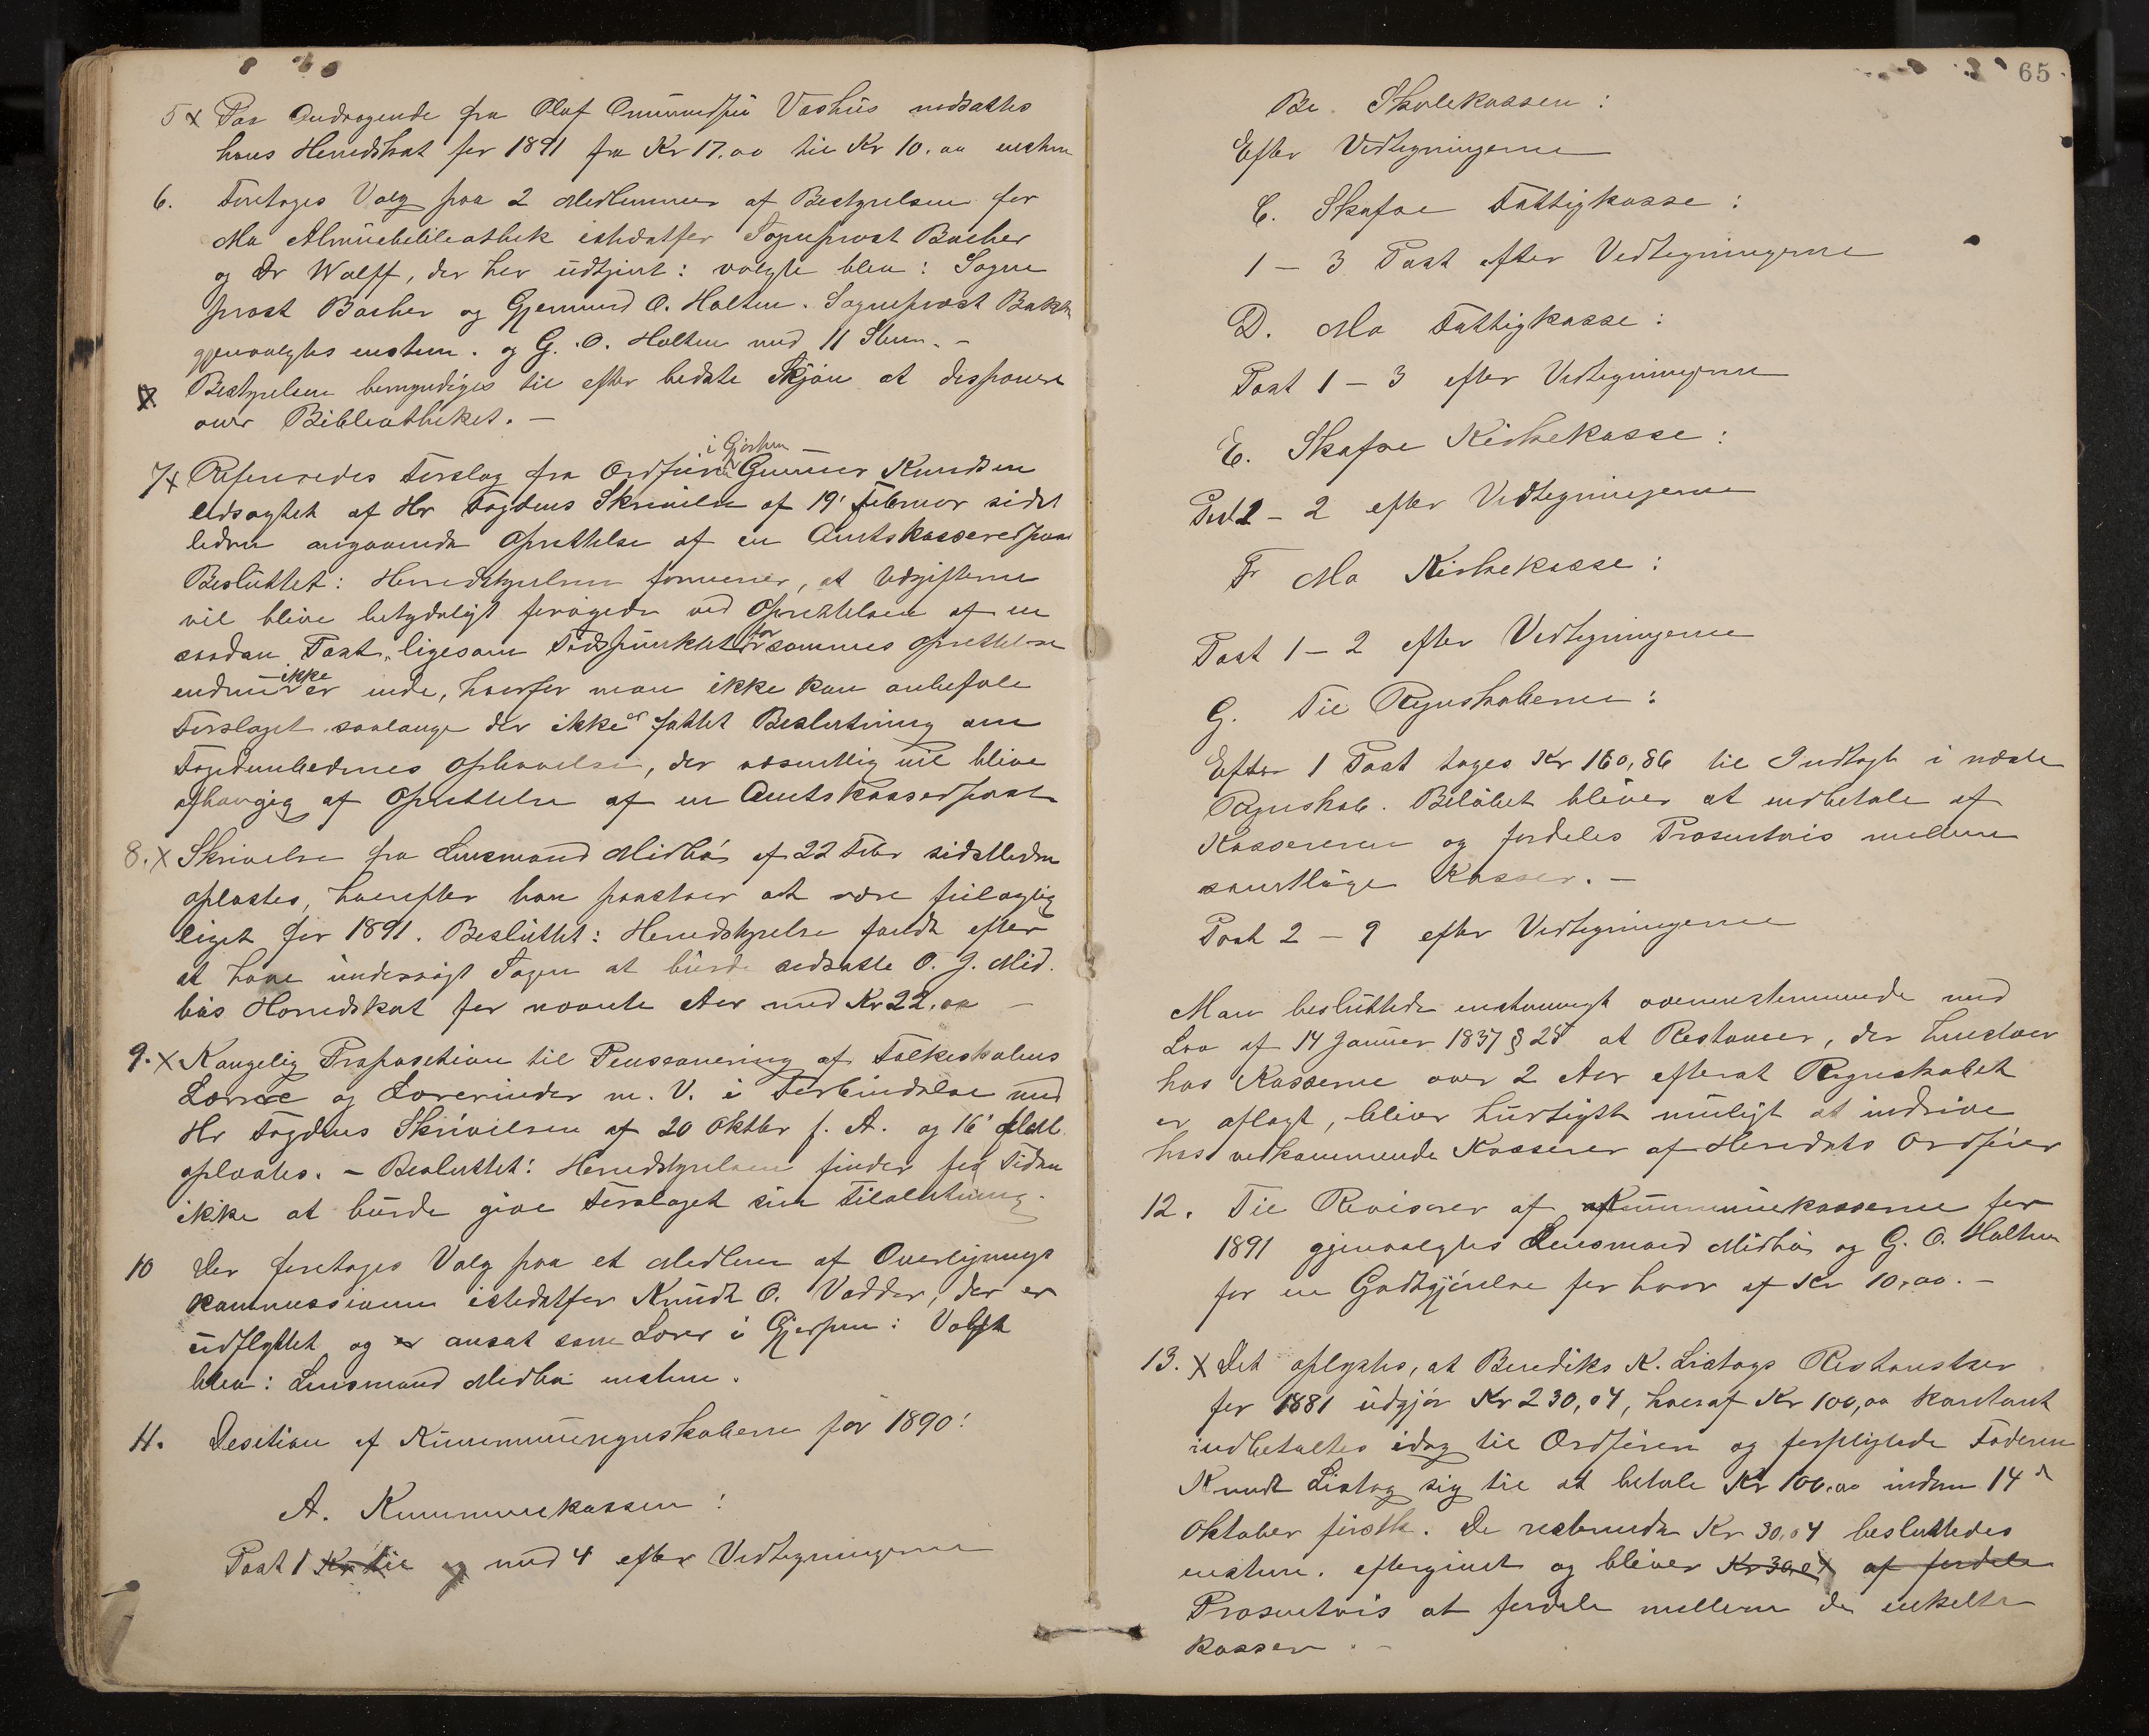 5 x Paa Andragende fra Olaf Omundsøn Vashus nedsattes
hans Herredskat for 1891 fra Kr 17.00 til Kr 10.00 enstem
6. Foretoges Valg paa 2 Medlemmer af Bestyrelsen for
Mo Almuebibliothek istedetfor Sogneprost Bacher
og Dr Wolff, der har udtjent: valgte blev: Sogne
prost Bacher og Gjermund O. Holten. Sogneprost Bakke
gjenvalgtes enstem. og G. O. Holten med 11 Stem. –
x Bestyrelsen bemyndiges til efter bedste Skjøn at disponere
over Bibliotheket. –
i Gjerpen
7 x Refereredes Forslag fra Ordfører Gunner Knudsen
ledsaget af Hr Fogdens Skrivelse af 19' Februar sidst
leden angaaende Oprettelse af en Amtskassererpost
Besluttet: Herredstyrelsen formener, at Udgifterne
vil blive betydeligt forøgede ved Oprettelsen af en
saadan Post, ligesom Tidspunktet for sammes Oprettelse
endnu ikke er inde, hvorfor man ikke kan anbefale
Forslaget saalænge der ikke er fattet Beslutning om
Fogdembedernes Ophævelse, der væsentlig vil blive
afhængig af Oprettelse af en Amtskassererpost
8. x Skrivelse fra Lensmand Midbø af 22 Febr sidstleden
oplæstes, hvorefter han paastaar at være feilagtig
lignet for 1891. Besluttet: Herredstyrelse fandt efter
at have undersøgt Sagen at burde nedsætte O. J. Mid
bøs Herredskat for nævnte Aar med Kr 22.00 –
9. x Kongelig Proposition til Pensionering af Folkeskolens
Lærere og Lærerinder m. V. i Forbindelse med
Hr Fogdens Skrivelse af 20 Oktbr f. A. og 16'
oplæstes. – Besluttet: Herredstyrelsen finder for Tiden
ikke at burde give Forslaget sin Tilslutning.
10 Der foretoges Valg paa et Medlem af Overlignings
kommissionen istedetfor Knudt O. Vadder, der er
udflyttet og er ansat som Lærer i Gjerpen: Valgt
blev: Lensmand Midbø enstem.
11. Desition af Kommuneregnskaberne for 1890:
A. Kommunekassen:
Post 1 Kr til og med 4 efter Vedtegningerne
65
B. Skolekassen:
Efter Vedtegningerne
C. Skafsoe Fattigkasse:
1 – 3 Post efter Vedtegningerne
D. Mo Fattigkasse:
Post 1 – 3 efter Vedtegningerne
E. Skafsoe Kirkekasse:
Post 1 – 2 efter Vedtegningerne
F Mo Kirkekasse:
Post 1 – 2 efter Vedtegningerne
G. Til Regnskaberne:
Efter 1 Post tages Kr 160,86 til Indtægt i næste
Regnskab. Beløbet bliver at indbetale af
Kassereren og fordeles Prosentvis mellem
samtlige Kasser. –
Post 2 – 9 efter Vedtegningerne
Man besluttede enstemmigt overensstemmende med
Lov af 14 Januar 1837 § 28 at Restancer, der henstaar
hos Kasserne over 2 Aar efterat Regnskabet
er aflagt, bliver hurtigst muligt at inddrive
hos vedkommende Kasserer af Herredets Ordfører
12. Til Revisorer af Kommunekasserne for
1891 gjenvalgtes Lensmand Midbø og G. O. Holten
for en Godtgjørelse for hver af Kr 10,00. –
13. x Det oplystes, at Bendiks K. Listogs Restanser
for 1881 udgjør Kr 230,04, hvoraf Kr 100,00 kontant
indbetaltes idag til Ordføren og forpligtede Faderen
Knudt Listog sig til at betale Kr 100.00 inden 14 d
Oktober førstk. De resterende Kr 30,04 besluttedes
enstem. eftergivet og bliver Kr 30,04 af fordele
Prosentvis at fordele mellem de enkelte
Kasser. –